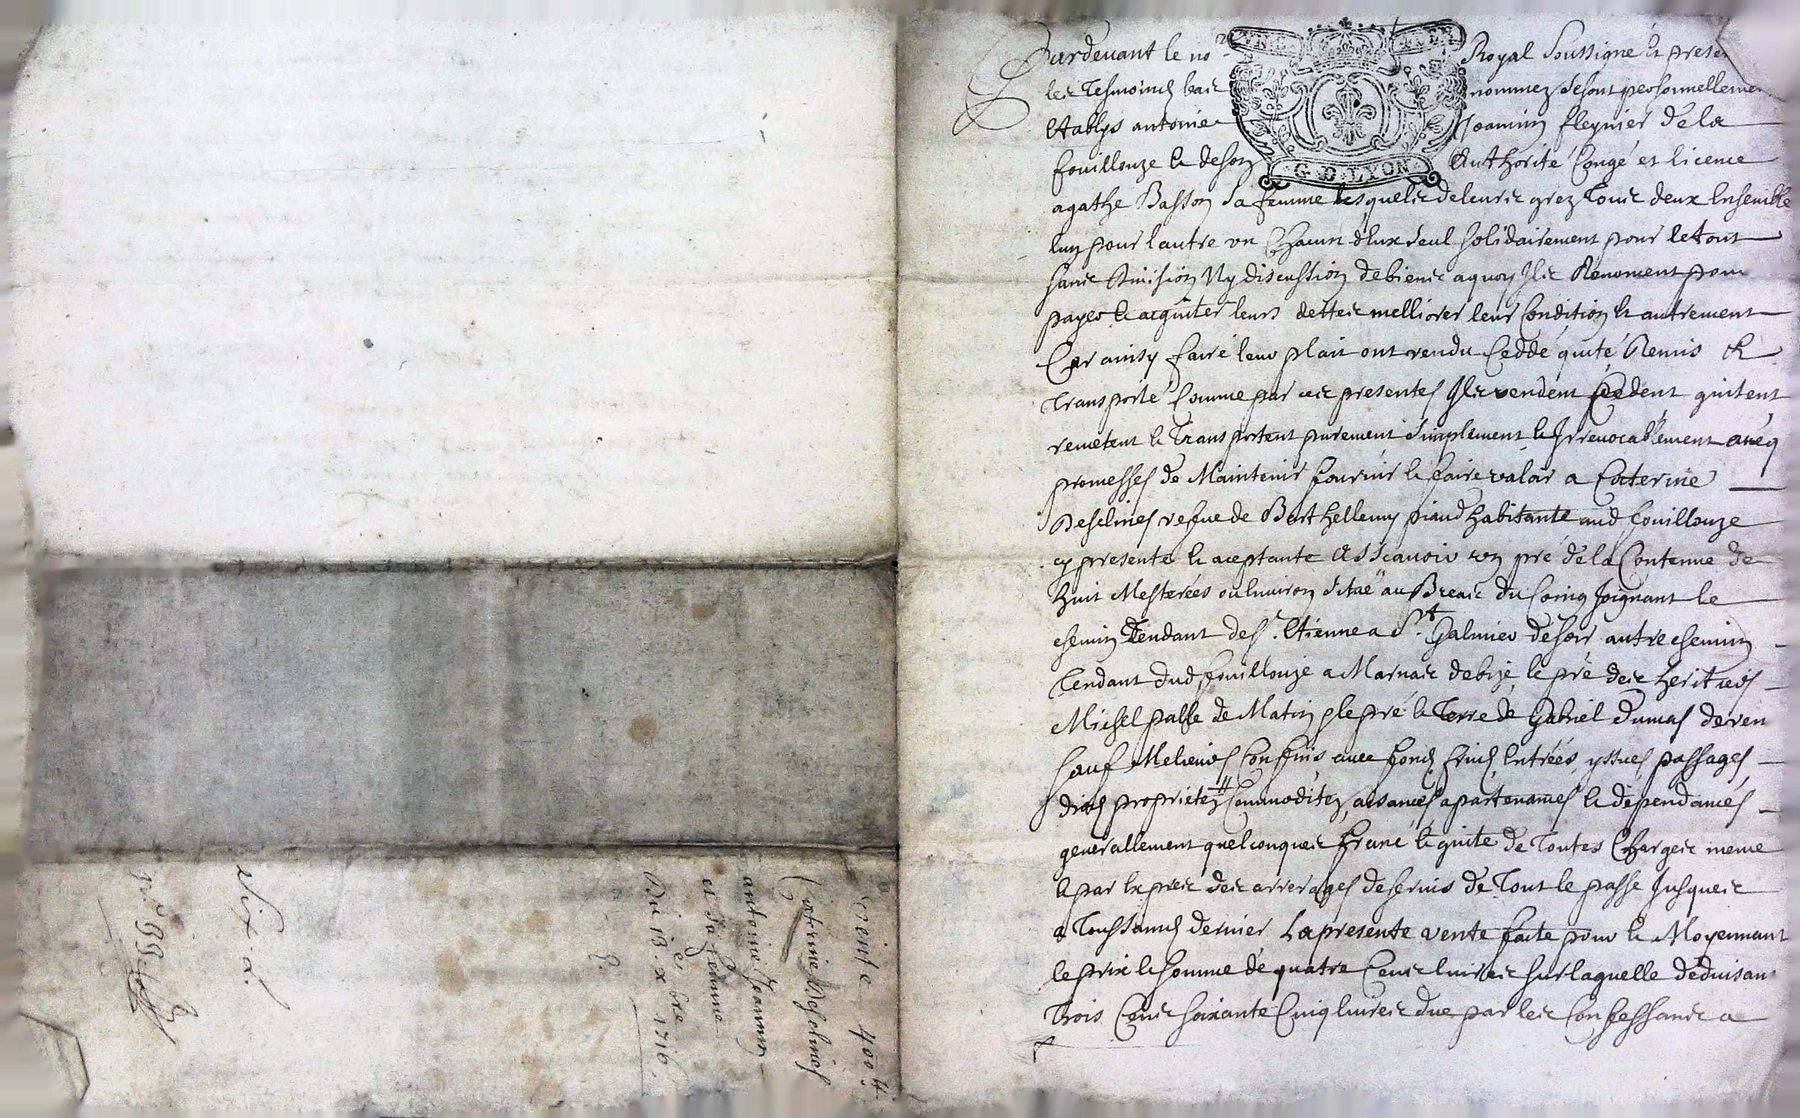 Pardevant le no.re Royal Soussigné et presen
les Tesmoins bas nommez se sont personnellemen
Establys antoine Joannin fleynier de la
fouillouze et de son Authorité Congé et licence
agathe Basson sa femme lesquels de leurs grez Tous deux Ensemble
lun pour lautre un Chacun deux seul solidairement pour le tout
sans division Ny discussion de biens a quoy Ils Renoncent pour
payer et acquiter leurs dettes melliorer leur Condition et autrement
Car ainsy faire leur plait ont vendu Ceddé quité Remis et
Transporté Comme par ces presentes Ils vendent Cedent quitent
remetent et Transportent purement simplement et Irrevocablement avéq
promesses de Maintenir fournir et faire valoir a Caterine
Deselines vefve de Berthellemy piaud habitante aud fouillouze
cy presente et aceptante Asscavoir un pré de la Contenue de
huit Mesterées ou Environ sitüé au Breaic du Coing Joignant le
chemin Tendant de St. Etienne a St. Galmier de soir autre chemin
Tendant dud fouillouze a Marnas de bize le pré des heritiers
Michel palle de Matin et le pré et Terre de Gabriel Dumas de ven
sauf Melieurs Confins avec fonds fruits Entrées yssues passages
droits proprietez Commoditez aisances apartenances et dependances
generallement quelconques franc et quite de Toutes Charges meme
et par Expres des arrerages de servis de Tout le passé Jusques
a Toussaints dernier La presente vente faite pour et Moyennant
le prix et somme de quatre Cens livres sur laquelle deduisant
Trois Cens soixante Cinq livres due par les Confessans a
G. D. LYON
vente 400 tt
Caterine Deselines
antoine Joannin
et sa femme
Du 13. xbre 1716.